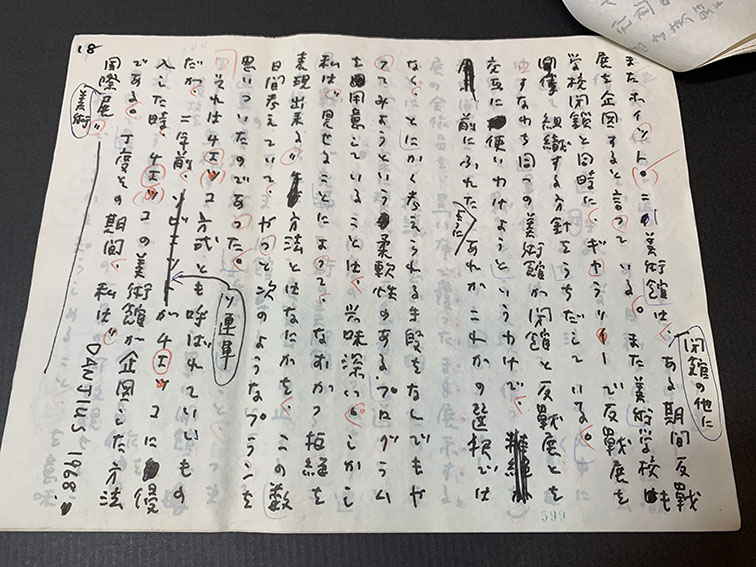 18
またホイットニー美術館は、閉館の他にある期間反戦
展を企図すると言っている。また美術学校も
学校閉鎖と同時に、ギャラリーで反戦展を
組織する方針をうちだしている。
すなわち同一の美術館が閉館と反戦展とを
交互に使いわけようというわけで、
前にふれたようにあれかこれかの選択では
なく、とにかく考えられる手段をなんでもや
ってみようという柔軟性のあるプログラム
を用意していることは、興味深い。しかし
私は“見せることによって、なおかつ拒絶を
表現出来る”方法とはなにかを、この数
日間考えていて、やっと次のようなプランを
思いついたのであった。
それは“チェッコ方式”とも呼ばれていいもの
だが、二年前、ソ連軍がチェッコに侵
入した時、チェッコの美術館が企図した方法
である。丁度その期間、私は“ 1968
国際美術展”
599